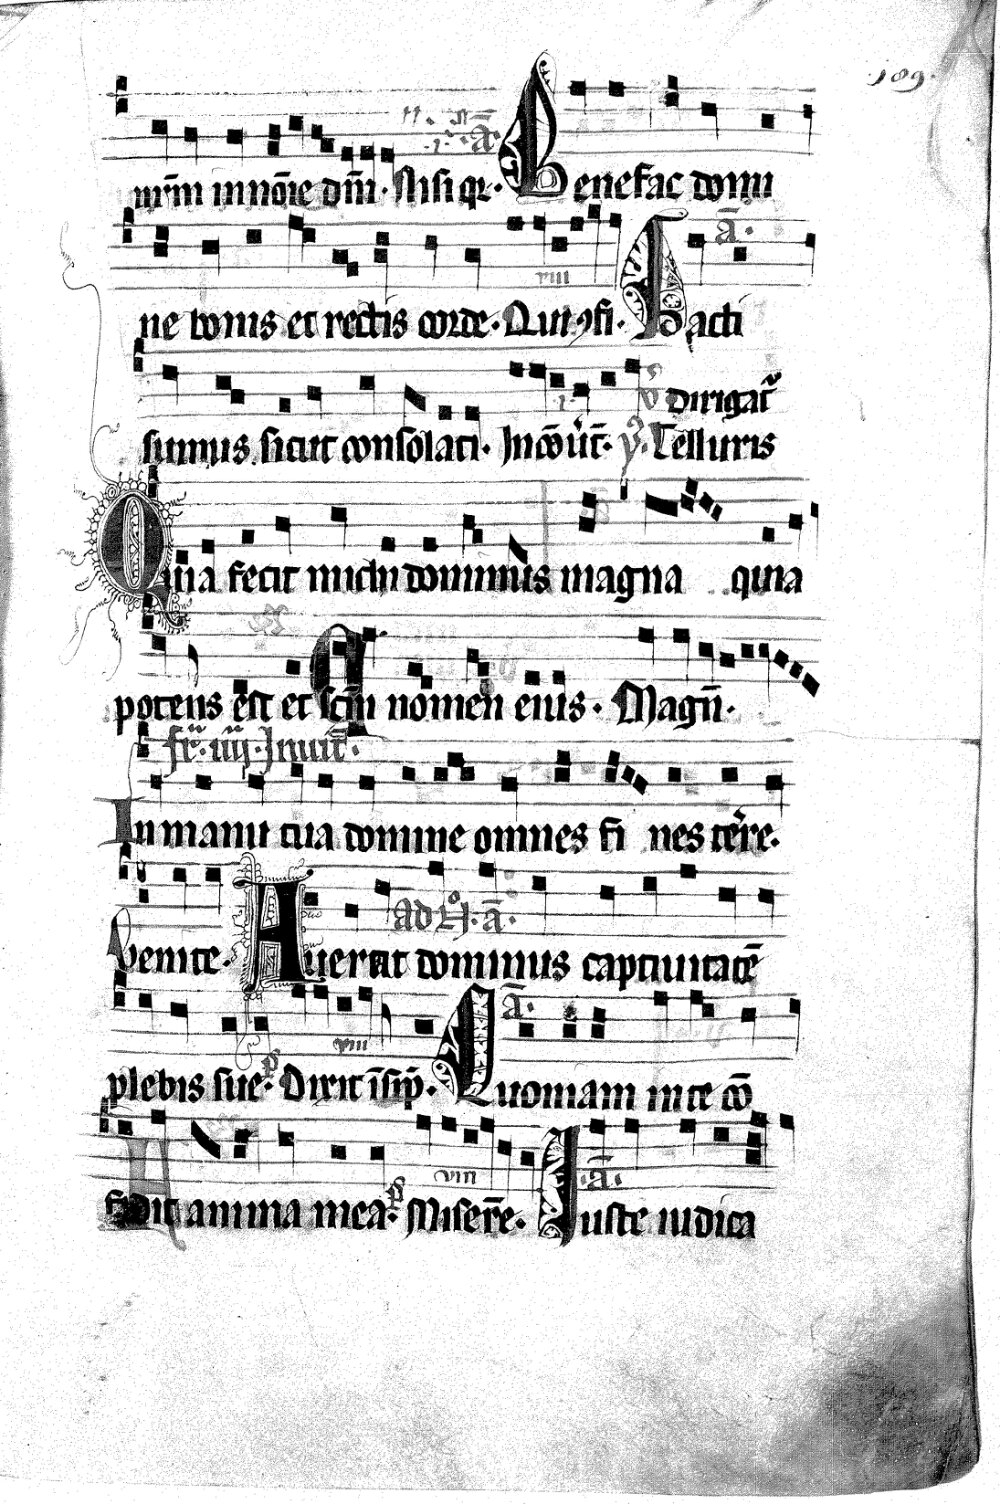 189.
a̅.
nr̅m in no̅ie dn̅i. Nisi qr. Benefac domi
a̅.
viii
ne bonis et rectis corde. Qui ꝯfi. Facti
℣ dirigat᷑
sumus sicut consolati. In co̅u̅t̅. ỹ. Telluris
Quia fecit michi dominus magna quia
potens est et sc̅m nomen eius. Magn̅.
fr̅. iiij. Inuit̅.
In manu tua domine omnes fi nes te̅re.
Venite. Auertit dominus captiuitate̅
a̅.
viii
plebis sue. Dixit i̅sip̅. Quoniam in te co̅
viii
a̅.
fidit anima mea. Misere̅. Iuste iudica